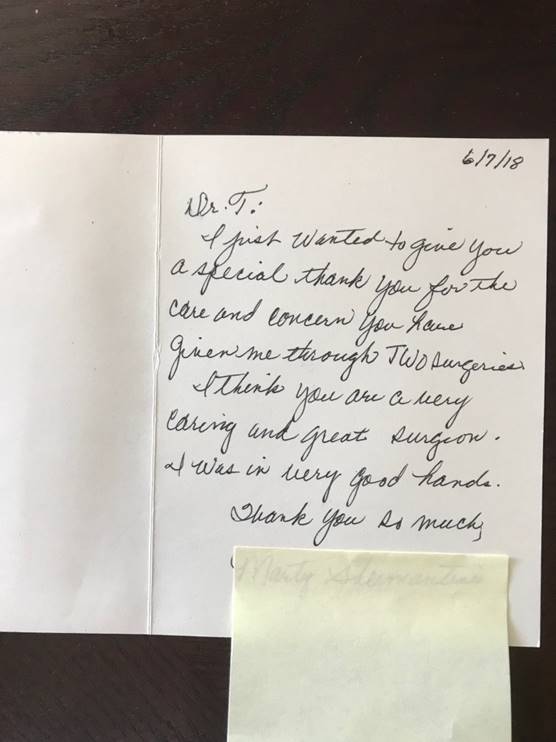 6/7/18
Dr. T:
I just wanted to give you
a special thank you for the
care and concern you have
given me through TWO surgeries.
I think you are a very
caring and great surgeon.
I was in very good hands.
Thank you so much,